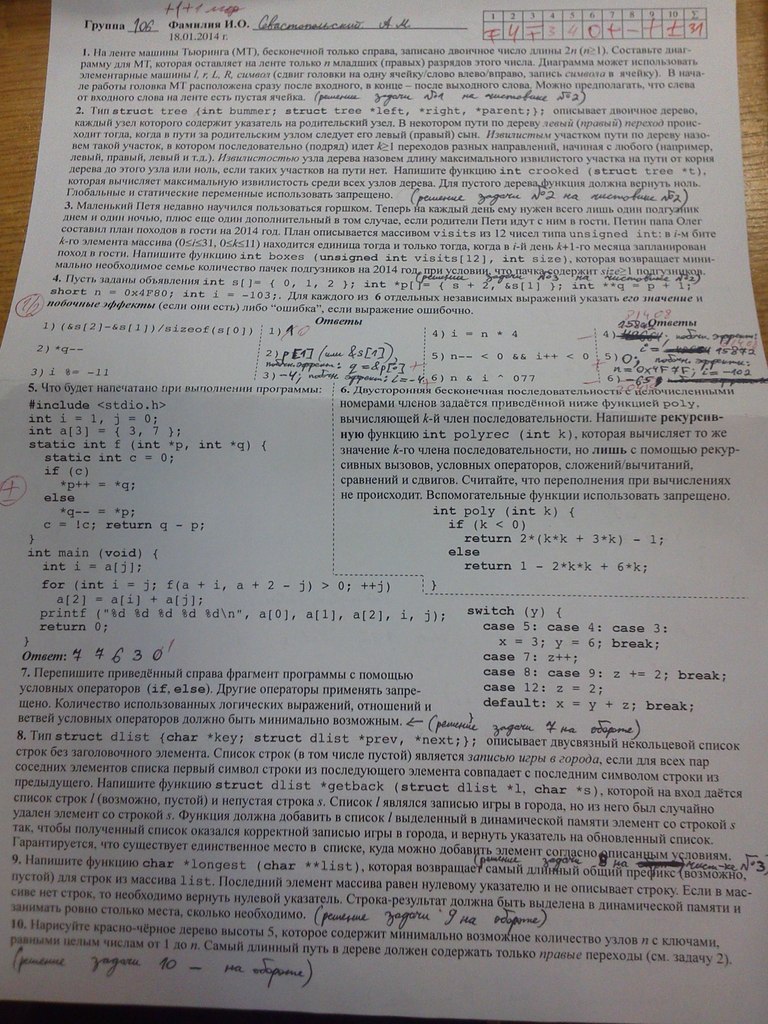 Группа 106 Фамилия И.О. Севастопольский А.М.
18.01.2014 г.
1 2 3 4 5 6 7 8 9 10 Σ
1. На ленте машины Тьюринга (МТ), бесконечной только справа, записано двоичное число длины 2n (n≥1). Составьте диаг-
рамму для МТ, которая оставляет на ленте только n младших (правых) разрядов этого числа. Диаграмма может использовать
элементарные машины l, r, L, R, символ (сдвиг головки на одну ячейку/слово влево/вправо, запись символа в ячейку). В нача-
ле работы головка МТ расположена сразу после входного, в конце – после выходного слова. Можно предполагать, что слева
от входного слова на ленте есть пустая ячейка. (решение задачи №1 на чистовике №2)
2. Тип struct tree {int bummer; struct tree *left, *right, *parent;}; описывает двоичное дерево,
каждый узел которого содержит указатель на родительский узел. В некотором пути по дереву левый (правый) переход проис-
ходит тогда, когда в пути за родительским узлом следует его левый (правый) сын. Извилистым участком пути по дереву назо-
вем такой участок, в котором последовательно (подряд) идет k≥1 переходов разных направлений, начиная с любого (например,
левый, правый, левый и т.д.). Извилистостью узла дерева назовем длину максимального извилистого участка на пути от корня
дерева до этого узла или ноль, если таких участков на пути нет. Напишите функцию int crooked (struct tree *t),
которая вычисляет максимальную извилистость среди всех узлов дерева. Для пустого дерева функция должна вернуть ноль.
Глобальные и статические переменные использовать запрещено. (решение задачи №2 на чистовике №2)
3. Маленький Петя недавно научился пользоваться горшком. Теперь на каждый день ему нужен всего лишь один подгузник
днем и один ночью, плюс еще один дополнительный в том случае, если родители Пети идут с ним в гости. Петин папа Олег
составил план походов в гости на 2014 год. План описывается массивом visits из 12 чисел типа unsigned int: в i-м бите
k-го элемента массива (0≤i≤31, 0≤k≤11) находится единица тогда и только тогда, когда в i-й день k+1-го месяца запланирован
поход в гости. Напишите функцию int boxes (unsigned int visits[12], int size), которая возвращает мини-
мально необходимое семье количество пачек подгузников на 2014 год, при условии, что пачка содержит size≥1 подгузников.
(решение задачи №3 на чистовике №2)
4. Пусть заданы объявления int s[]= { 0, 1, 2 }; int *p[]= { s + 2, &s[1] }; int **q = p + 1;
short n = 0x4F80; int i = -103;. Для каждого из 6 отдельных независимых выражений указать его значение и
побочные эффекты (если они есть) либо "ошибка", если выражение ошибочно.
Ответы
Ответы
1) (&s[2]-&s[1])/sizeof(s[0])
1) 0
4) i = n * 4
4) 15872
побоч. эффект:
i = 15872
2) *q--
2) p[1] (или &s[1])
побочн. эффект: q = &p[0]
5) n-- < 0 && i++ < 0
5) 0;
3) i %= -11
3) -4; побочн. эффект: i = -4
6) n & i ^ 077
6) -65
5. Что будет напечатано при выполнении программы:
#include <stdio.h>
int i = 1, j = 0;
int a[3] = { 3, 7 };
static int f (int *p, int *q) {
static int c = 0;
if (c)
*p++ = *q;
else
*q-- = *p;
c = !c; return q - p;
}
int main (void) {
int i = a[j];
for (int i = j; f(a + i, a + 2 - j) > 0; ++j)
a[2] = a[i] + a[j];
printf ("%d %d %d %d %d\n", a[0], a[1], a[2], i, j);
return 0;
}
Ответ: 7 7 6 3 0
6. Двусторонняя бесконечная последовательность с целочисленными
номерами членов задаётся приведённой ниже функцией poly,
вычисляющей k-й член последовательности. Напишите рекурсив-
ную функцию int polyrec (int k), которая вычисляет то же
значение k-го члена последовательности, но лишь с помощью рекур-
сивных вызовов, условных операторов, сложений/вычитаний,
сравнений и сдвигов. Считайте, что переполнения при вычислениях
не происходит. Вспомогательные функции использовать запрещено.
int poly (int k) {
if (k < 0)
return 2*(k*k + 3*k) - 1;
else
return 1 - 2*k*k + 6*k;
}
7. Перепишите приведённый справа фрагмент программы с помощью
условных операторов (if, else). Другие операторы применять запре-
щено. Количество использованных логических выражений, отношений и
ветвей условных операторов должно быть минимально возможным. ← (решение задачи 7 на обороте)
switch (y) {
case 5: case 4: case 3:
x = 3; y = 6; break;
case 7: z++;
case 8: case 9: z += 2; break;
case 12: z = 2;
default: x = y + z; break;
8. Тип struct dlist {char *key; struct dlist *prev, *next;}; описывает двусвязный некольцевой список
строк без заголовочного элемента. Список строк (в том числе пустой) является записью игры в города, если для всех пар
соседних элементов списка первый символ строки из последующего элемента совпадает с последним символом строки из
предыдущего. Напишите функцию struct dlist *getback (struct dlist *l, char *s), которой на вход даётся
список строк l (возможно, пустой) и непустая строка s. Список l являлся записью игры в города, но из него был случайно
удален элемент со строкой s. Функция должна добавить в список l выделенный в динамической памяти элемент со строкой s
так, чтобы полученный список оказался корректной записью игры в города, и вернуть указатель на обновленный список.
Гарантируется, что существует единственное место в списке, куда можно добавить элемент согласно описанным условиям.
(решение задачи 8 на чист-ке №3)
9. Напишите функцию char *longest (char **list), которая возвращает самый длинный общий префикс (возможно,
пустой) для строк из массива list. Последний элемент массива равен нулевому указателю и не описывает строку. Если в мас-
сиве нет строк, то необходимо вернуть нулевой указатель. Строка-результат должна быть выделена в динамической памяти и
занимать ровно столько места, сколько необходимо. (решение задачи 9 на обороте)
10. Нарисуйте красно-чёрное дерево высоты 5, которое содержит минимально возможное количество узлов n с ключами,
равными целым числам от 1 до n. Самый длинный путь в дереве должен содержать только правые переходы (см. задачу 2).
(решение задачи 10 – на обороте)